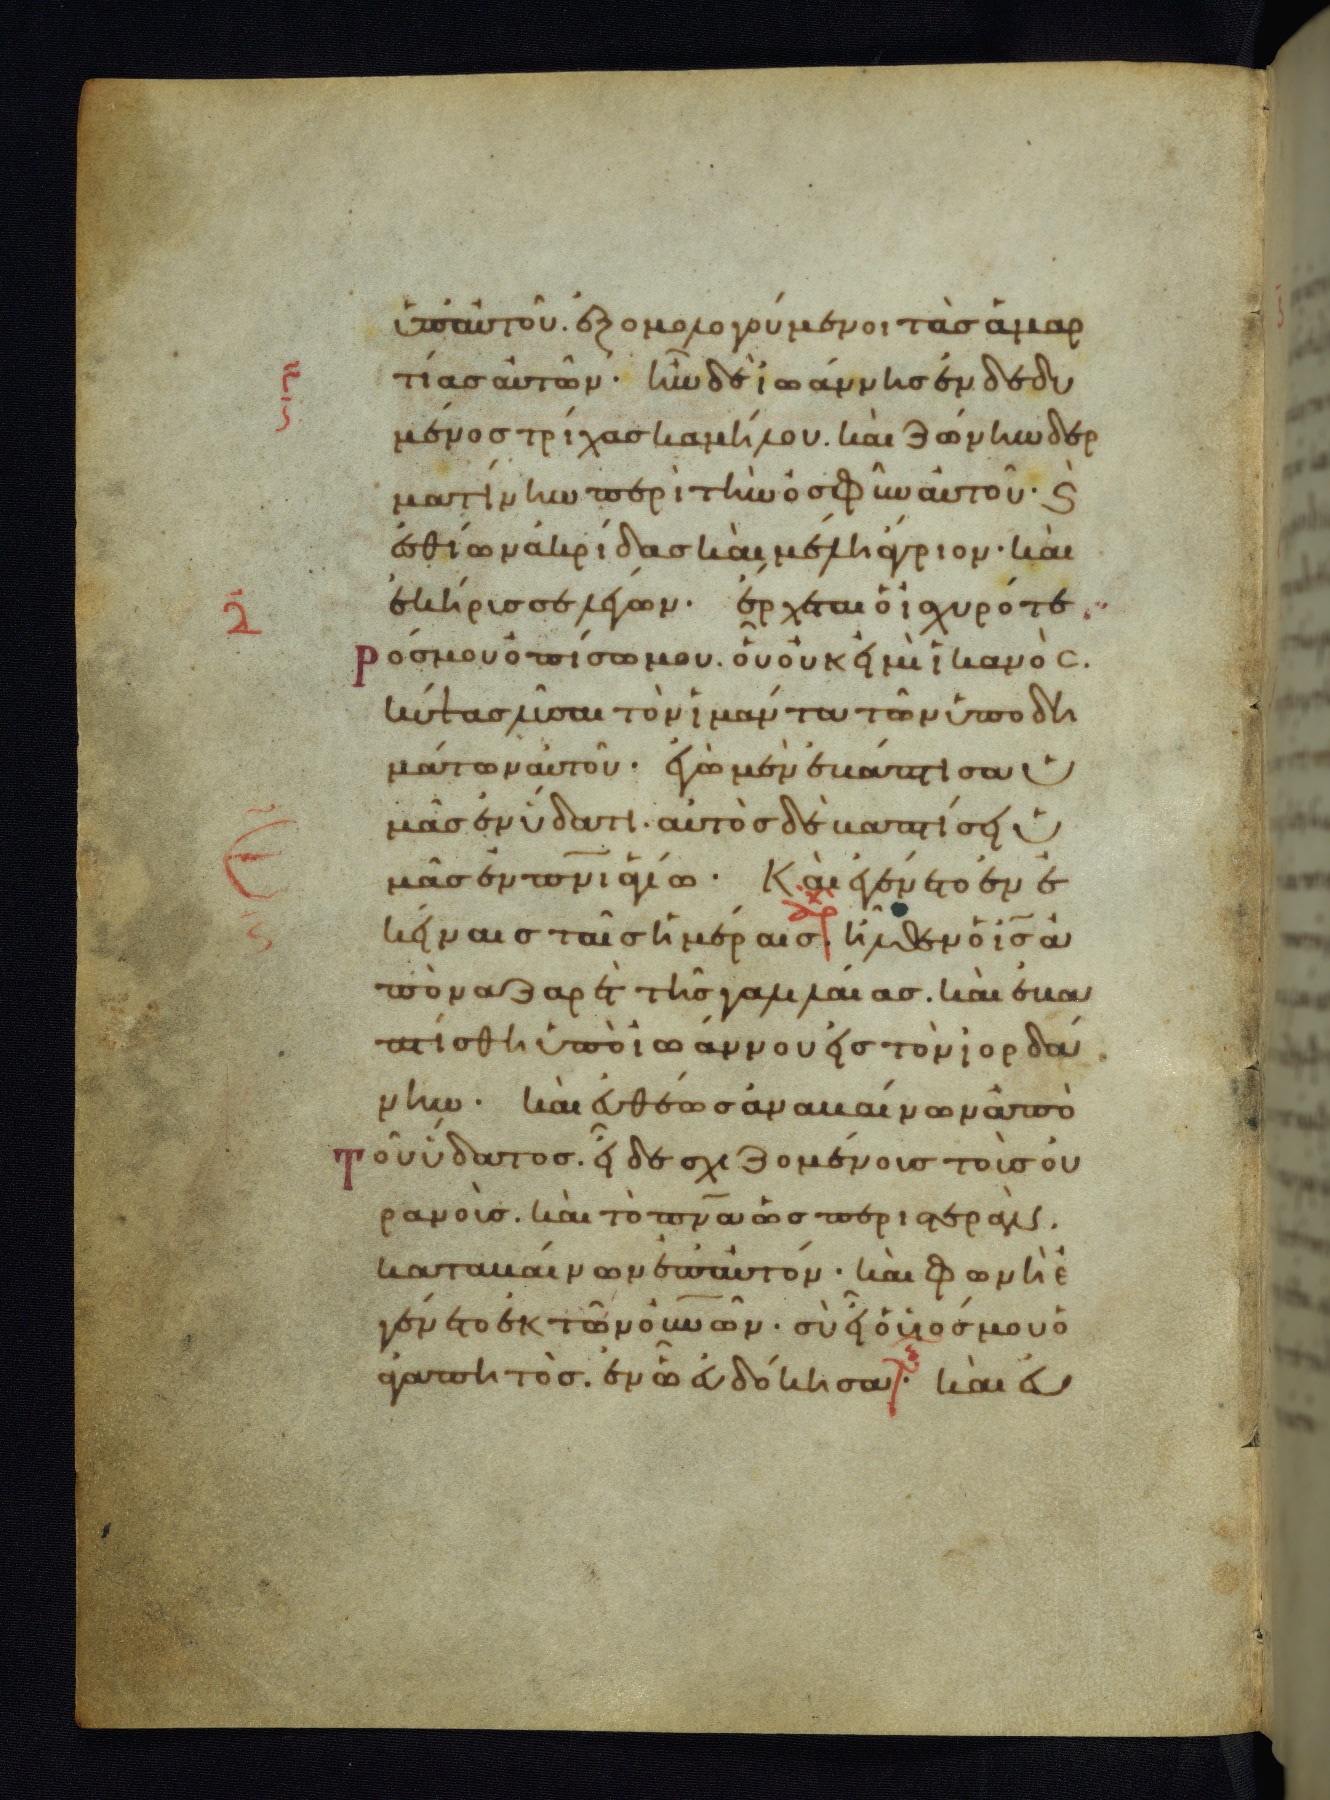 ὑπ' αὐτοῦ. ἐξομολογούμενοι τὰς ἁμαρ
τίας αὐτῶν· ἦν δὲ ἰωάννης ἐνδεδυ
μένος τρίχας καμήλου. καὶ ζώνην δερ
ματίνην περὶ τὴν ὀσφῦν αὐτοῦ· ϗ
ἐσθίων ἀκρίδας καὶ μέλι ἄγριον· καὶ
ἐκήρισσε λέγων· ἔρχεται ὁ ἰσχυρότε
ρός μου ὀπίσω μου. οὗ οὐκ εἰμὶ ἱκανὸς.
κύψας λῦσαι τὸν ἱμάντα τῶν ὑποδη
μάτων αὐτοῦ· ἐγὼ μὲν ἐβάπτισα ὑ
μᾶς ἐν ὕδατι. αὐτὸς δὲ βαπτίσει ὑ
μᾶς ἐν πνι ἁγίω· Καὶ ἐγένετο ἐν ἐ
κείναις ταῖς ἡμέραις. ἦλθεν ὁ ις ἀ
πὸ ναζαρὲτ τῆς γαλιλαίας. καὶ ἐβα
πτίσθη ὑπὸ ἰωάννου εἰς τὸν ἰορδά
νην· καὶ εὐθέως ἀναβαίνων ἀπὸ
τοῦ ὕδατος. εἶδε σχιζομένοις τοὺς οὐ
ρανοὺς. καὶ τὸ πνα ὡς περιστερὰν.
καταβαίνων ἐπ' αὐτόν· καὶ φωνὴ ἐ
γένετο ἐκ τῶν οὐνῶν· σὺ εἶ ὁ υἱός μου ὁ
ἀγαπητὸς. ἐν ᾧ εὐδόκησα· καὶ εὐ